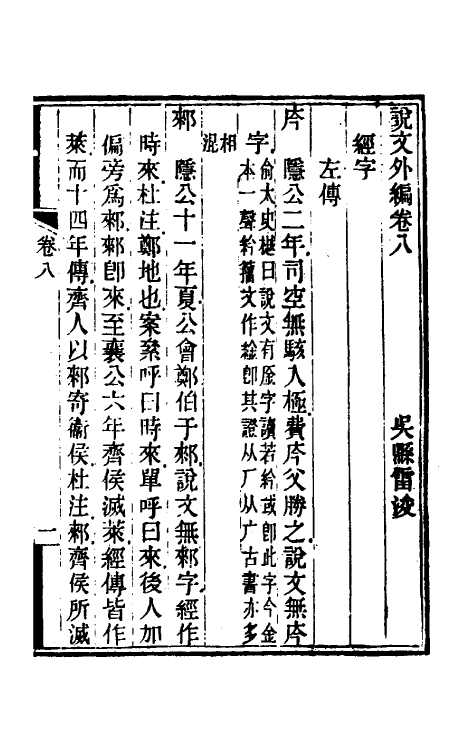 說文外編卷八
吳縣雷浚
經字
左傳
庈 隱公二年司空無駭入極費庈父勝之說文無庈
字 俞太史樾曰說文有㕂字讀若紟或卽此字今金
本一聲紟籒文作䋮卽其證从厂从广古書亦多
相混
郲 隱公十一年夏公會鄭伯于郲說文無郲字經作
時來杜注鄭地也案絫呼曰時來單呼曰來後人加
偏旁爲郲郲卽來至襄公六年齊侯滅萊經傳皆作
萊而十四年傳齊人以郲寄衞侯杜注郲齊侯所滅
卷八
一